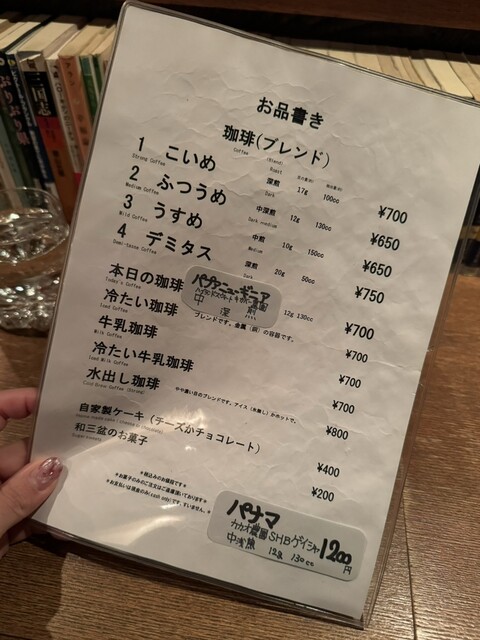 お品書き
珈琲(ブレンド)
Coffee (Blend)
1 こいめ 深煎 17g 100cc ¥700
Strong Coffee Dark
2 ふつうめ 中深煎 12g 130cc ¥650
Medium Coffee Dark medium
3 うすめ 中煎 10g 150cc ¥650
Mild Coffee Medium
4 デミタス 深煎 20g 50cc ¥750
Demi-tasse Coffee Dark
本日の珈琲 パプアニューギニア 中深煎 12g 130cc ¥700
Today's Coffee
冷たい珈琲 ¥700
Iced Coffee
牛乳珈琲 ¥700
Milk Coffee
冷たい牛乳珈琲 ¥700
Iced Milk Coffee
水出し珈琲 ¥800
Cold Brew Coffee (Strong)
自家製ケーキ(チーズかチョコレート) ¥400
和三盆のお菓子 ¥200
*税込みのお値段です*
*お菓子のみのご注文はご遠慮頂いております*
*お支払いは現金のみ(cash only)です。すいません。*
パナマ
カカオ農園 SHBゲイシャ 1200円
中浅煎 12g 130cc
三国志